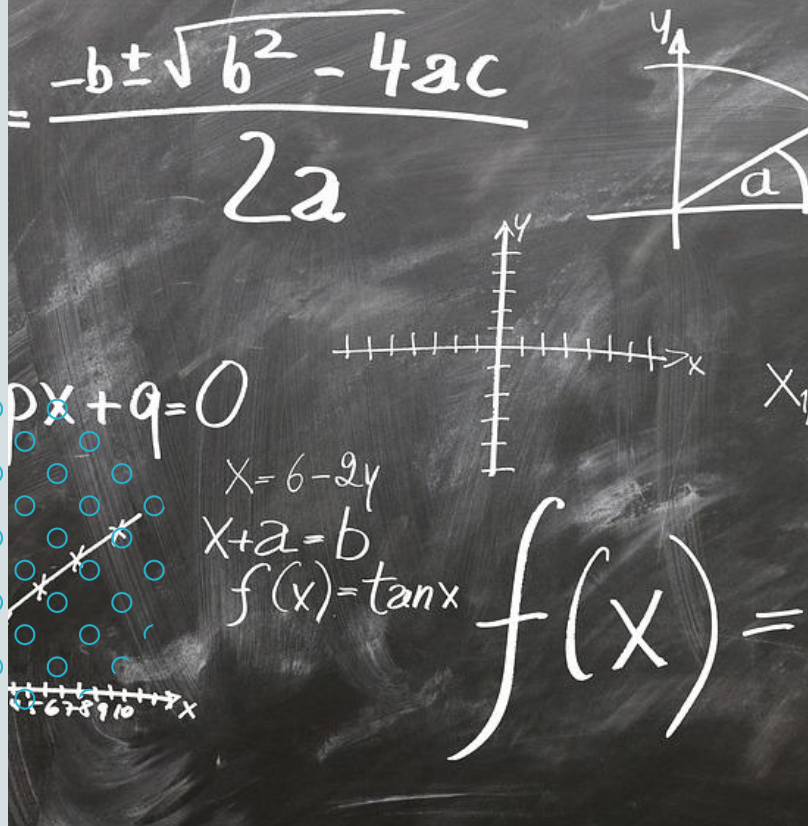 = -b±√b² - 4ac
2a
y
a
y
x
px + q = 0
X₁
X = 6 - 2y
x + a = b
f(x) = tanx
f(x) =
6 7 8 9 10
x